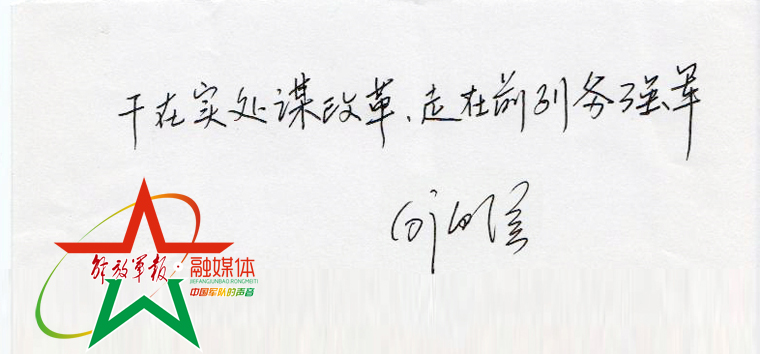 干在实处谋改革、走在前列务强军
解放军报·融媒体
JIEFANGJUNBAO RONGMEITI
中国军队的声音